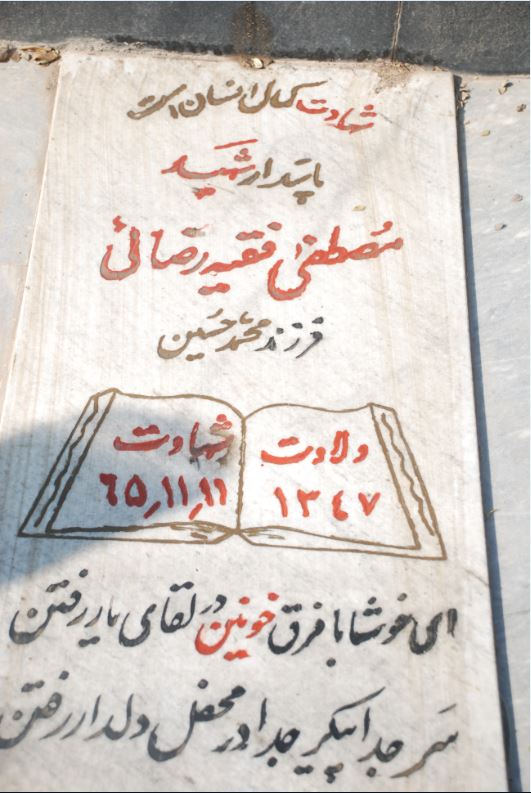 شهادت کمال انسان است
پاسدار شهید
مصطفی فقیه رضائی
فرزند محمد حسین
ولادت
۱۳٤۷
شهادت
٦۵٫۱۱٫۱۱
ای خوشا با فرق خونین در لقای یار رفتن
سر جدا پیکر جدا در محفل دلدار رفتن